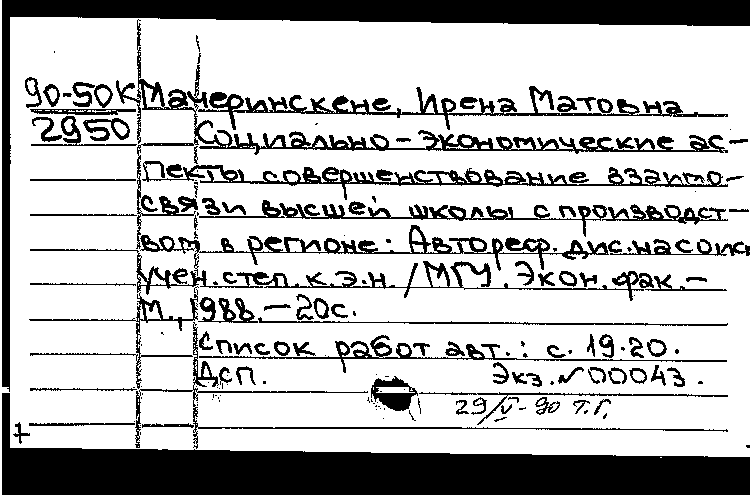 90-50К Мачеринскене, Ирена Матовна.
2950 Социально-экономические ас-
пекты совершенствование взаимо-
связи высшей школы с производст-
вом в регионе: Автореф. дис. на соиск
учен. степ. к.э.н. / МГУ. Экон. фак. –
М., 1988. – 20с.
Список работ авт.: с. 19-20.
Дсп. Экз. № 00043.
29/V-90 Т.Г.
+